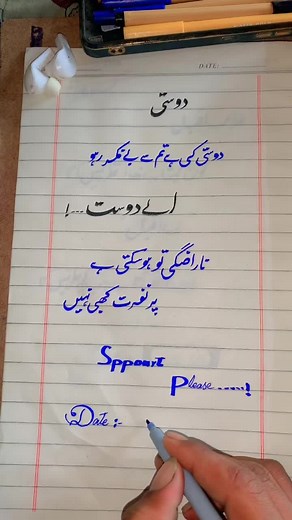 DATE:
دوستی
دوستی کی ہے تم سے بے فکر رہو
اے دوست...!
ناراضگی تو ہو سکتی ہے
پر نفرت کبھی نہیں
Sppourt
Please.....!
Date:-